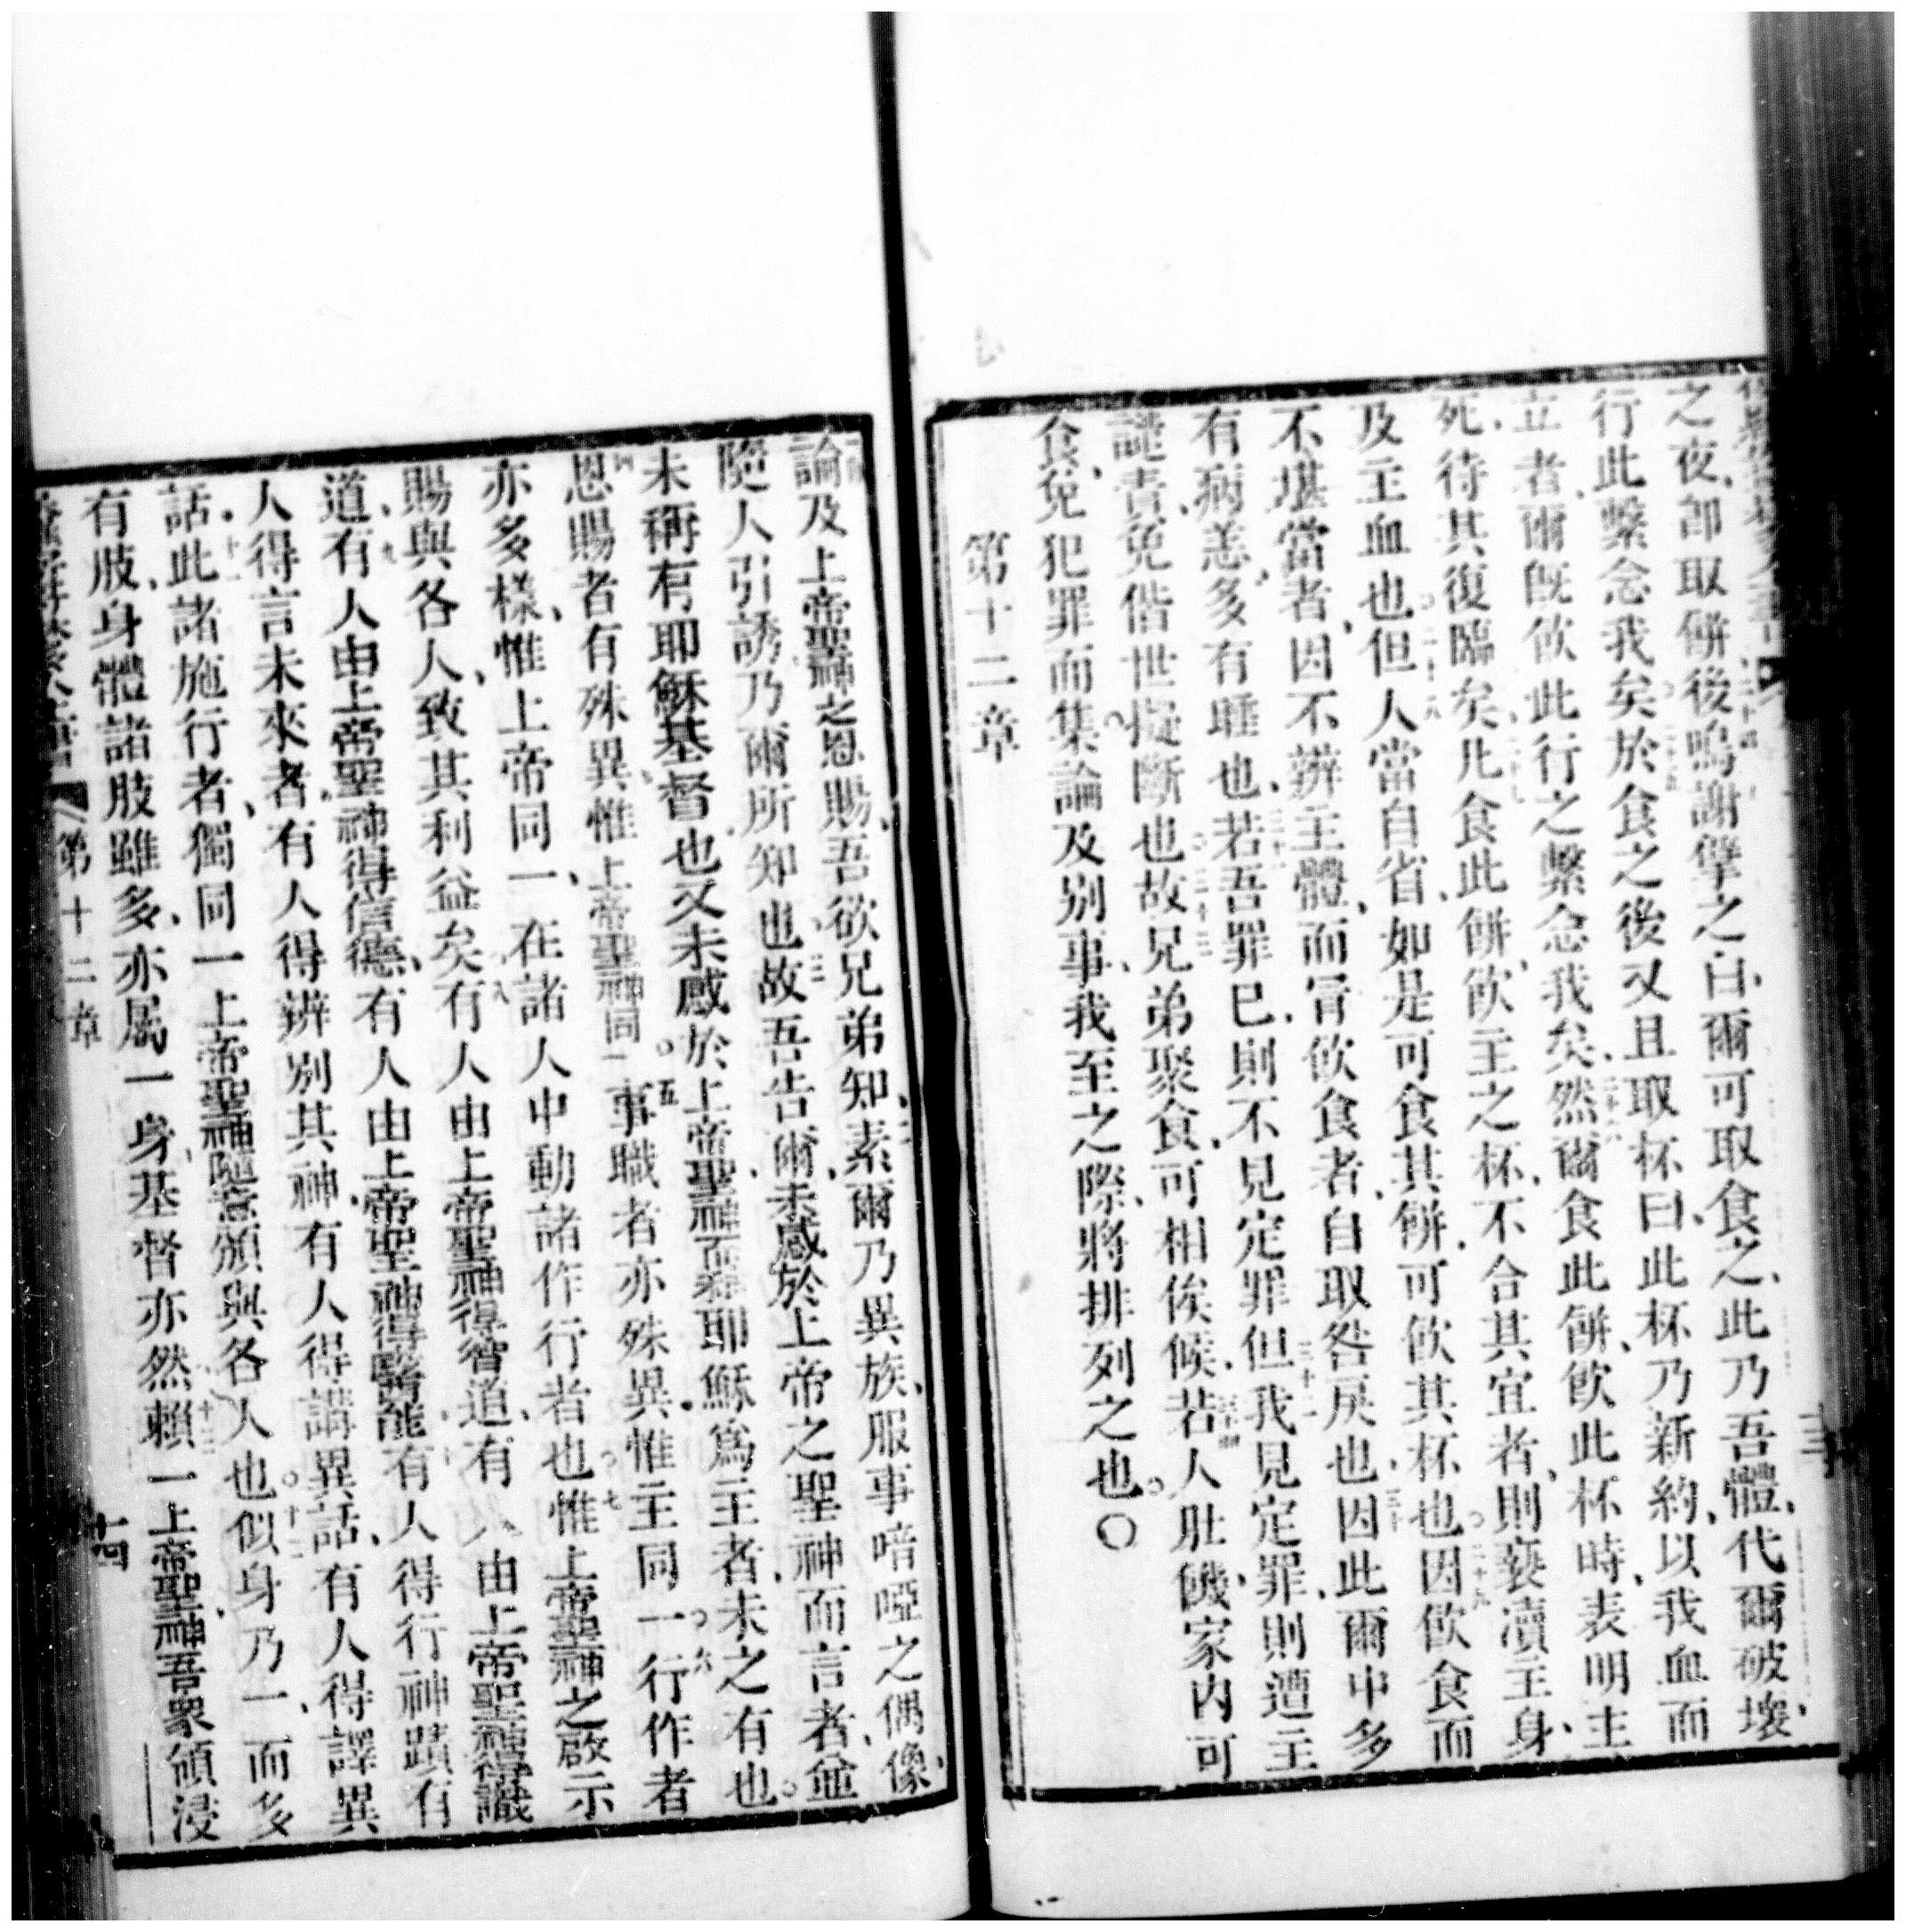 之夜、卽取餅後鳴謝擘之、曰、爾可取食之、此乃吾體、代爾破壞、
行此繫念我矣於食之後又且取杯曰、此杯乃新約、以我血而
立者、爾旣飲此行之繫念我矣、然爾食此餅、飲此杯時、表明主
死、待其復臨矣凡食此餅、飲主之杯、不合其宜者、則褻瀆主身、
及主血也但人當自省、如是可食其餅、可飲其杯也因飲食而
不堪當者、因不辨主體、而冒飲食者、自取咎戾也、因此爾中多
有病恙、多有睡也、若吾罪已、則不見定罪但我見定罪、則遭主
譴責免偕世擬斷也故兄弟聚食、可相俟候、若人肚饑、家內可
食、免犯罪而集論及別事、我至之際、將排列之也〇
第十二章
論及上帝聖神之恩賜、吾欲兄弟知、素爾乃異族、服事喑啞之偶像、
隨人引誘乃爾所知也故吾告爾、未感於上帝之聖神而言者、並
未稱有耶穌基督也又未感於上帝聖神而稱耶穌爲主者、未之有也
恩賜者有殊異、惟上帝聖神同一事職者亦殊異、惟主同一行作者
亦多樣、惟上帝同一、在諸人中動諸作行者也惟上帝聖神之啟示
賜與各人、致其利益矣有人由上帝聖神得智道、有人由上帝聖神得識
道、有人由上帝聖神得信德、有人由上帝聖神得醫能有人得行神蹟有
人得言未來者、有人得辨別其神、有人得講異話、有人得譯異
話、此諸施行者、獨同一上帝聖神隨意頒與各人也似身乃一、而多
有肢、身體諸肢雖多、亦屬一身、基督亦然賴一上帝聖神、吾衆領浸
第十二章
十四